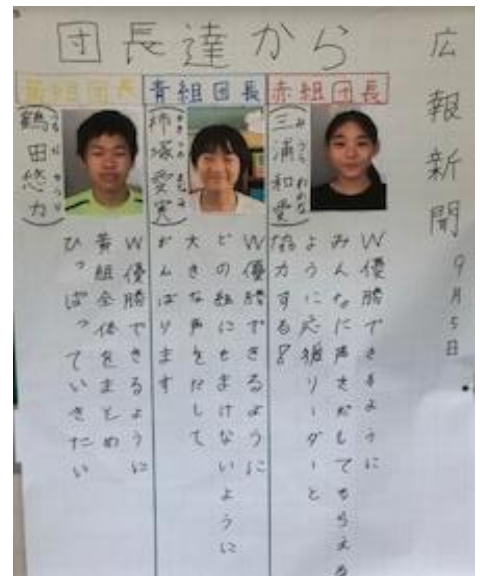 広報新聞
9月5日
団長達から
赤組団長
三浦和愛
W優勝できるように
みんなに声をだしてもらえる
ように応援リーダーと
協力する!
青組団長
柿塚愛実
W優勝できるように
どの組にもまけないように
大きな声をだして
がんばります
黄組団長
鶴田悠力
W優勝できるように
黄組全体をまとめ
ひっぱっていきたい